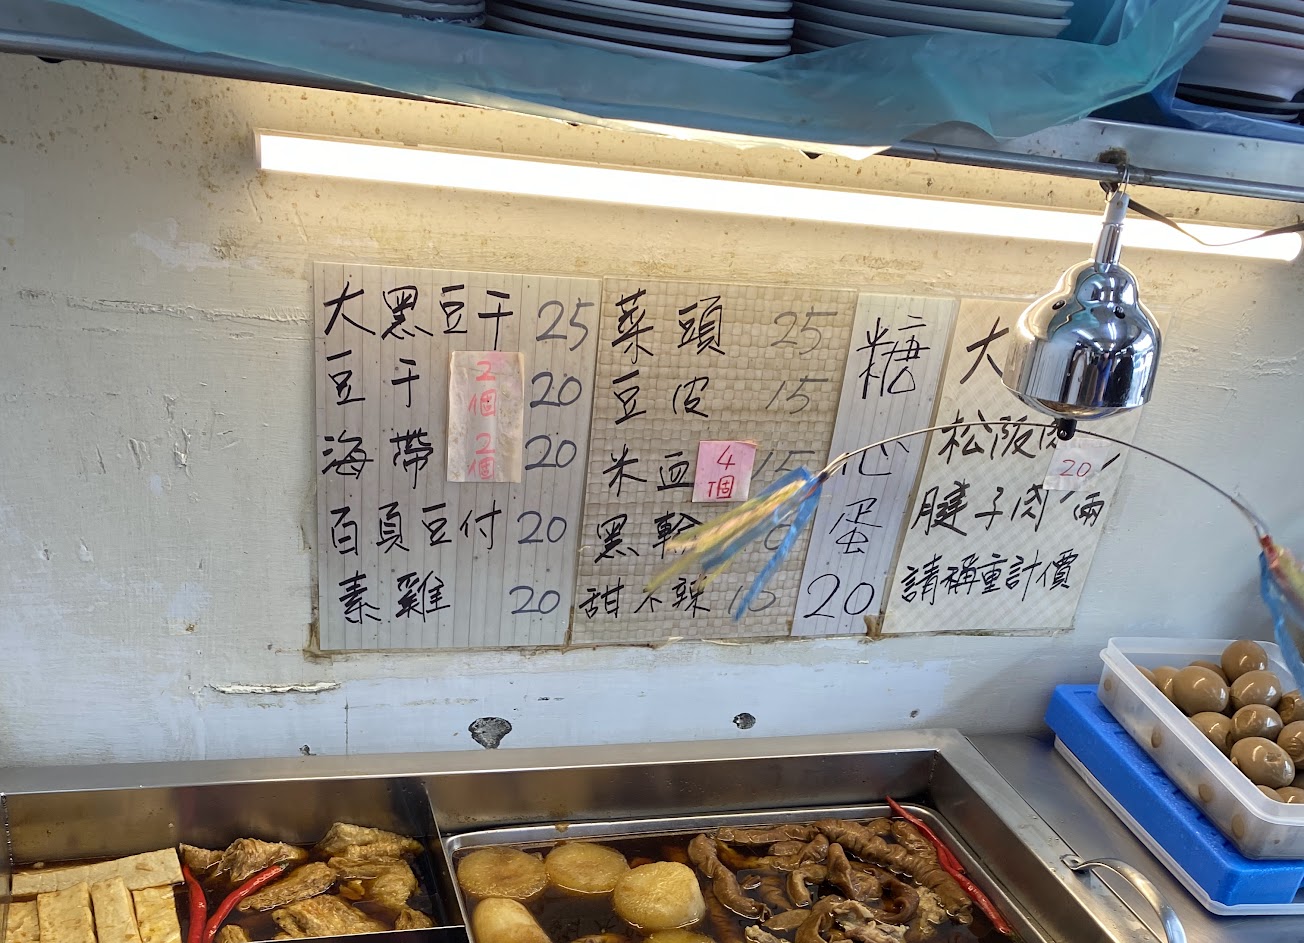 大黑豆干 25
豆干 2個 20
海帶 2個 20
百頁豆付 20
素雞 20
菜頭 25
豆皮 15
米血 4個 15
黑輪
甜不辣 15
糖心蛋 20
大
松阪肉
20
腱子肉 兩
請稱重計價